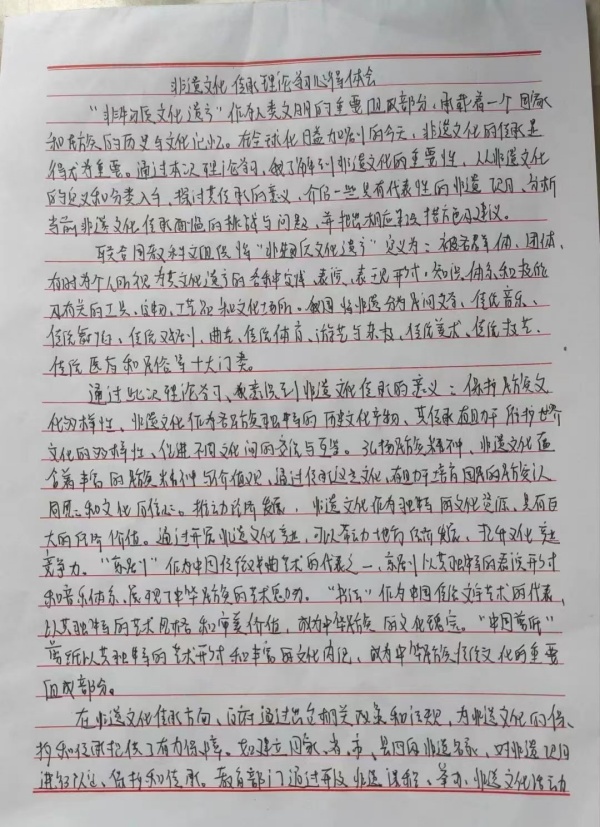 非遗文化传承理论学习心得体会
“非物质文化遗产”作为人类文明的重要组成部分，承载着一个国家
和民族的历史与文化记忆。在全球化日益加剧的今天，非遗文化的传承显
得尤为重要。通过本次理论学习，我了解到非遗文化的重要性，从非遗文化
的定义和分类入手，探讨其传承的意义，介绍一些具有代表性的非遗项目，分析
当前非遗文化传承面临的挑战与问题，并提出相应措施及建议。
联合国教科文组织将“非物质文化遗产”定义为：被各群体、团体、
有时为个人所视为其文化遗产的各种实践、表演、表现形式、知识体系和技能
及有关的工具、实物、工艺品和文化场所。我国将非遗分为民间文学、传统音乐、
传统舞蹈、传统戏剧、曲艺、传统体育、游艺与杂技、传统美术、传统技艺、
传统医药和民俗等十大门类。
通过此次理论学习，我意识到非遗文化传承的意义：保护民族文
化多样性、非遗文化作为各民族独特的历史文化产物，其传承有助于维护世界
文化的多样性，促进不同文化间的交流与互鉴。弘扬民族精神，非遗文化蕴
含着丰富的民族精神与价值观，通过传承这些文化，有助于培育国民的民族认
同感和文化自信心。推动经济发展，非遗文化作为独特的文化资源，具有巨
大的经济价值。通过开展非遗文化产业，可以带动地方经济发展，提升文化产业
竞争力。“京剧”作为中国传统戏曲艺术的代表之一，京剧以其独特的表演形式
和音乐体系，展现了中华民族的艺术魅力。“书法”作为中国传统文字艺术的代表，
以其独特的艺术风格和审美价值，成为中华民族的文化瑰宝。“中国剪纸”
剪纸以其独特的艺术形式和丰富的文化内涵，成为中华民族传统文化的重要
组成部分。
在非遗文化传承方面，政府通过出台相关政策和法规，为非遗文化的保
护和传承提供了有力保障。如建立国家、省、市、县四级非遗名录，对非遗项目
进行认定、保护和传承。教育部门通过开设非遗课程、举办非遗文化活动